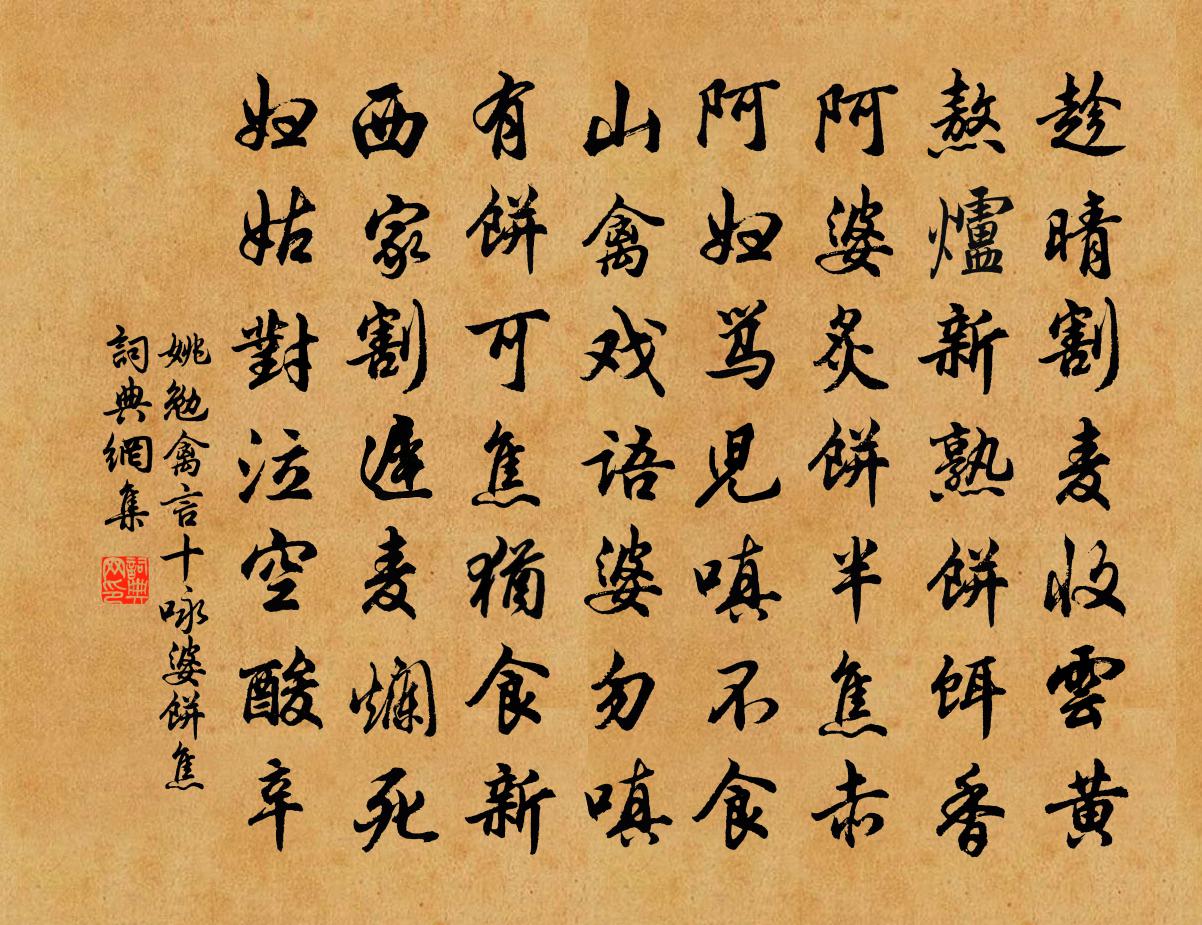 趁晴割麦收雲黄
熬爐新熟餅餌香
阿婆炙餅半焦赤
阿妇骂児嗔不食
山禽戏語婆勿嗔
有餅可焦猶食新
西家割遲麦爛死
妇姑對泣空酸辛
姚勉禽言十咏婆餅焦
詞典網集
詞典网印